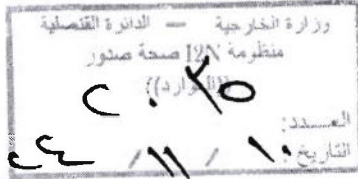 وزارة الخارجية — الدائرة القنصلية
منظومة I2N صحة صدور
((الوارد))
العـــدد: ٢٠٣٥
التاريخ: ١٠ / ١١ /